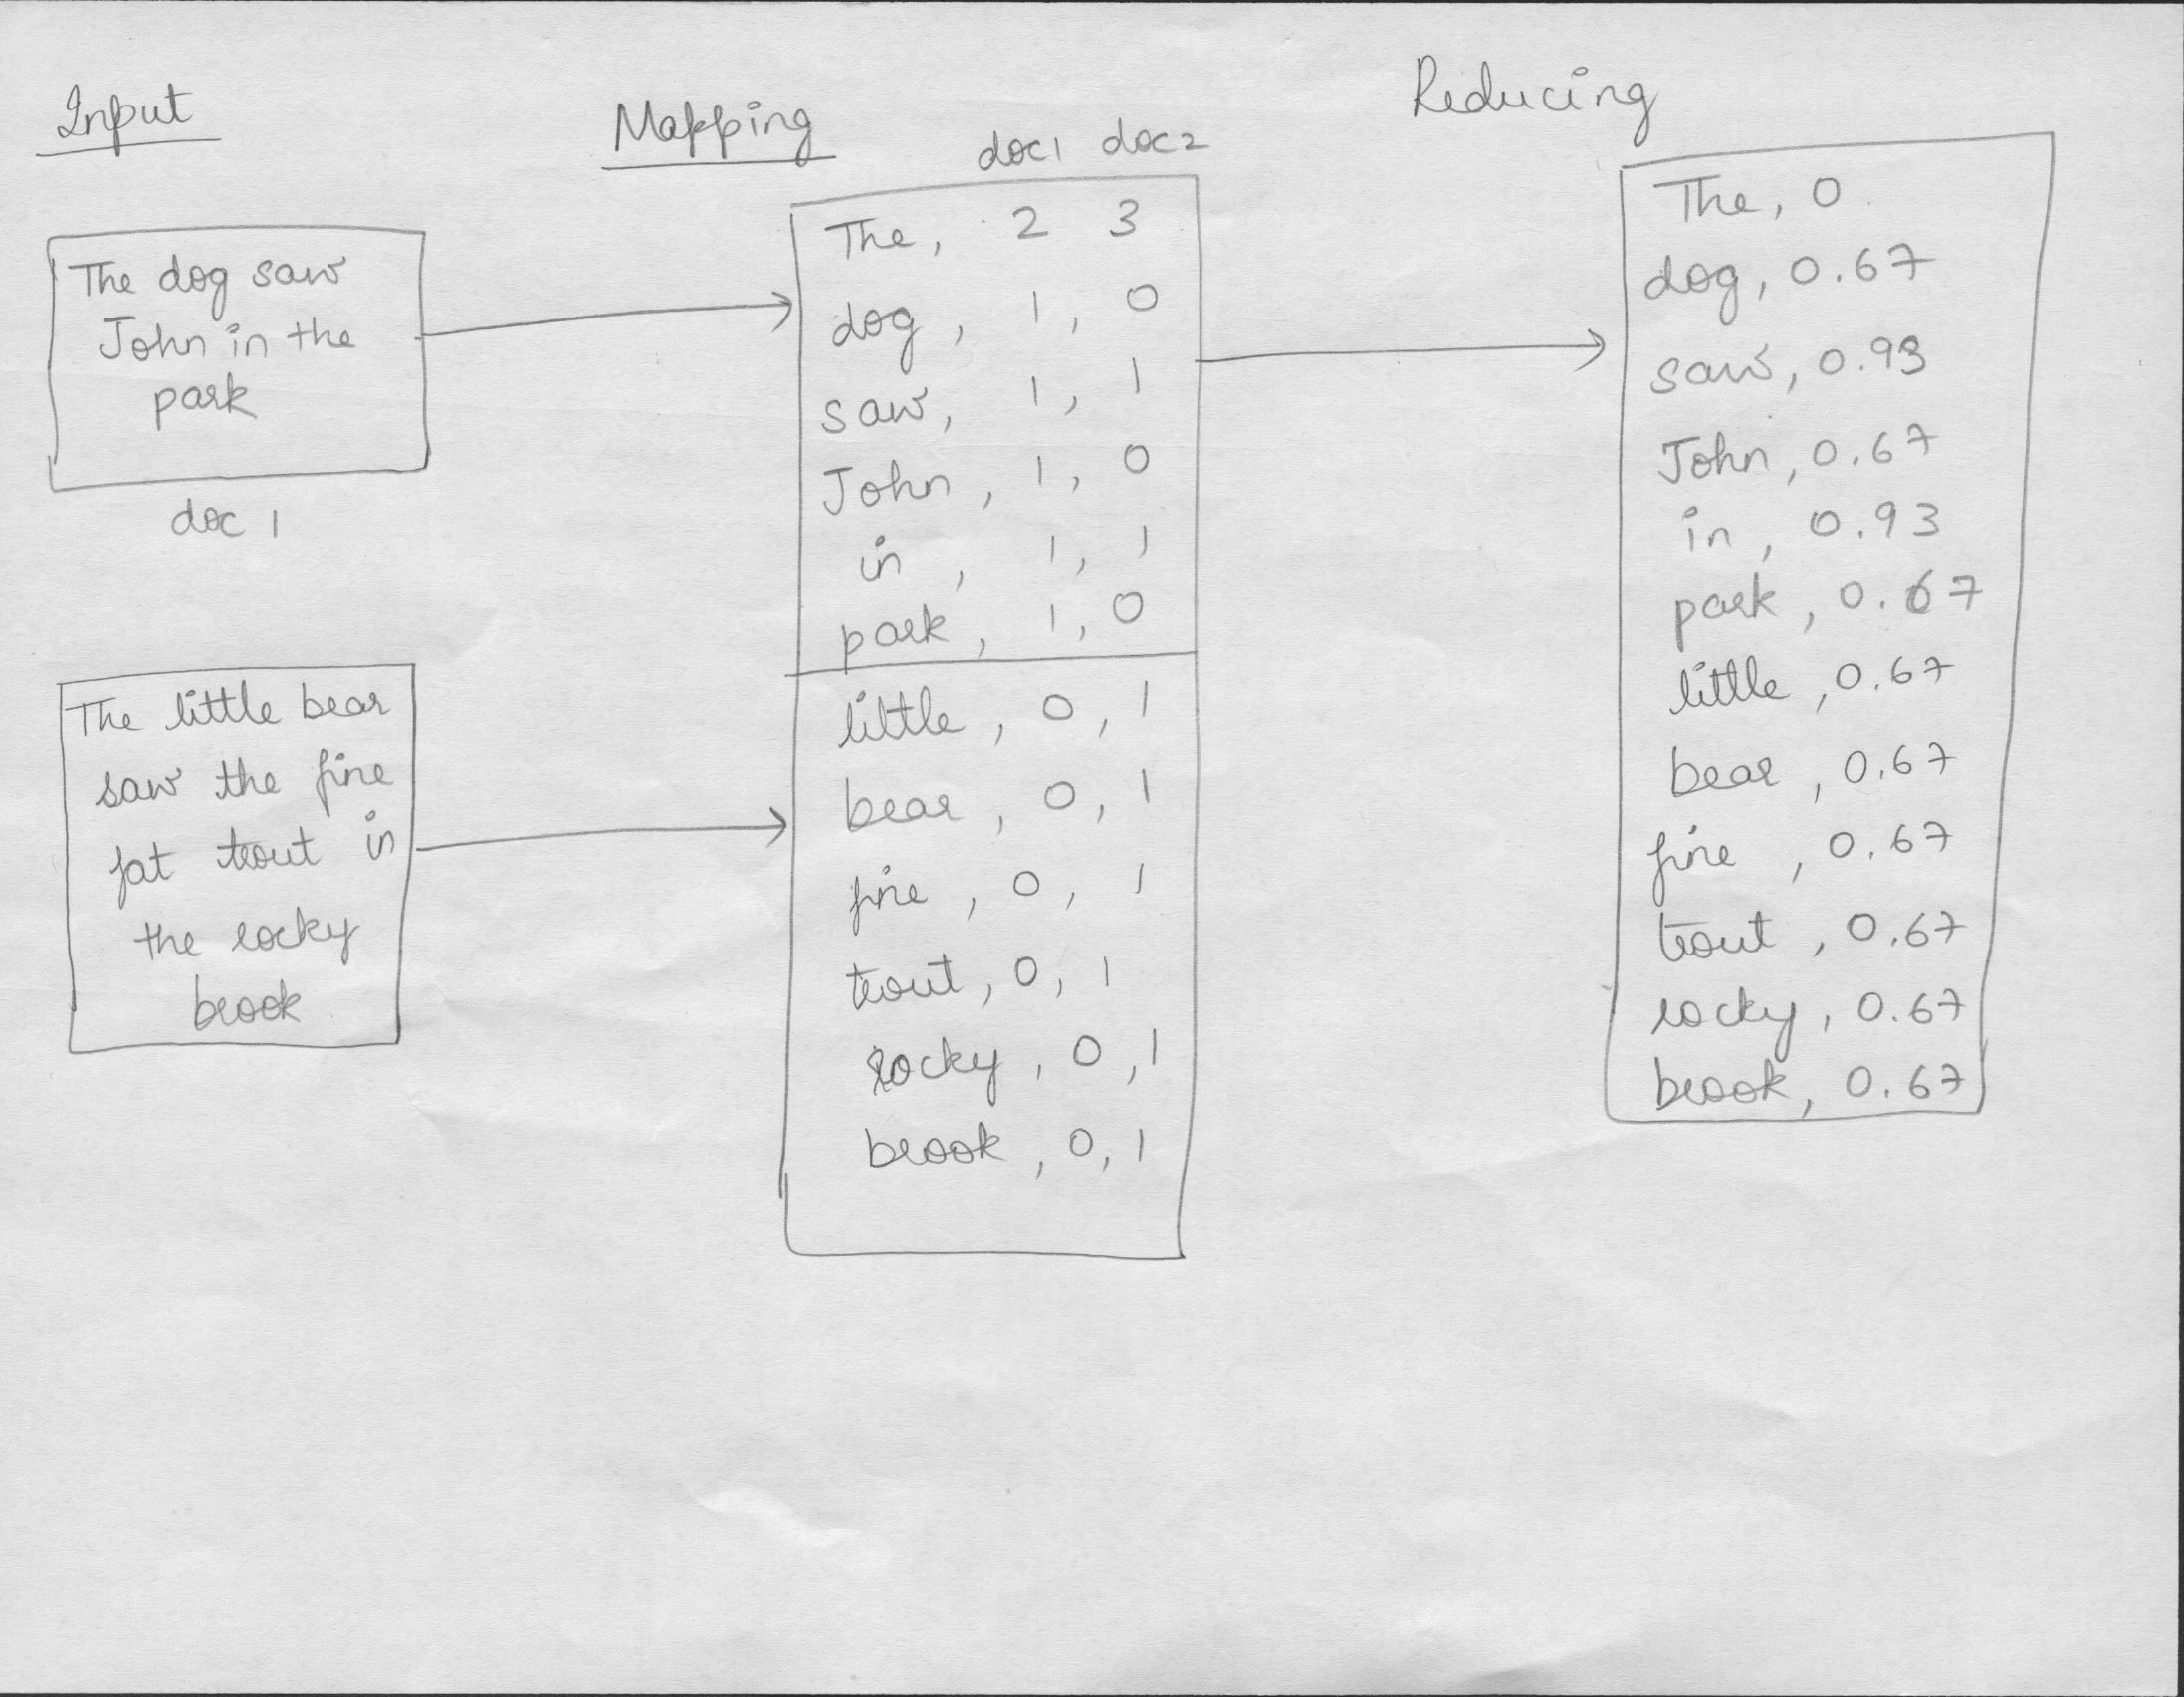 Input
Mapping
doc1 doc2
Reducing
The dog saw
John in the
park
doc 1
The little bear
saw the fine
fat trout in
the rocky
brook
The, 2 3
dog, 1, 0
saw, 1, 1
John, 1, 0
in, 1, 1
park, 1, 0
little, 0, 1
bear, 0, 1
fine, 0, 1
trout, 0, 1
rocky, 0, 1
brook, 0, 1
The, 0
dog, 0.67
saw, 0.93
John, 0.67
in, 0.93
park, 0.67
little, 0.67
bear, 0.67
fine, 0.67
trout, 0.67
rocky, 0.67
brook, 0.67